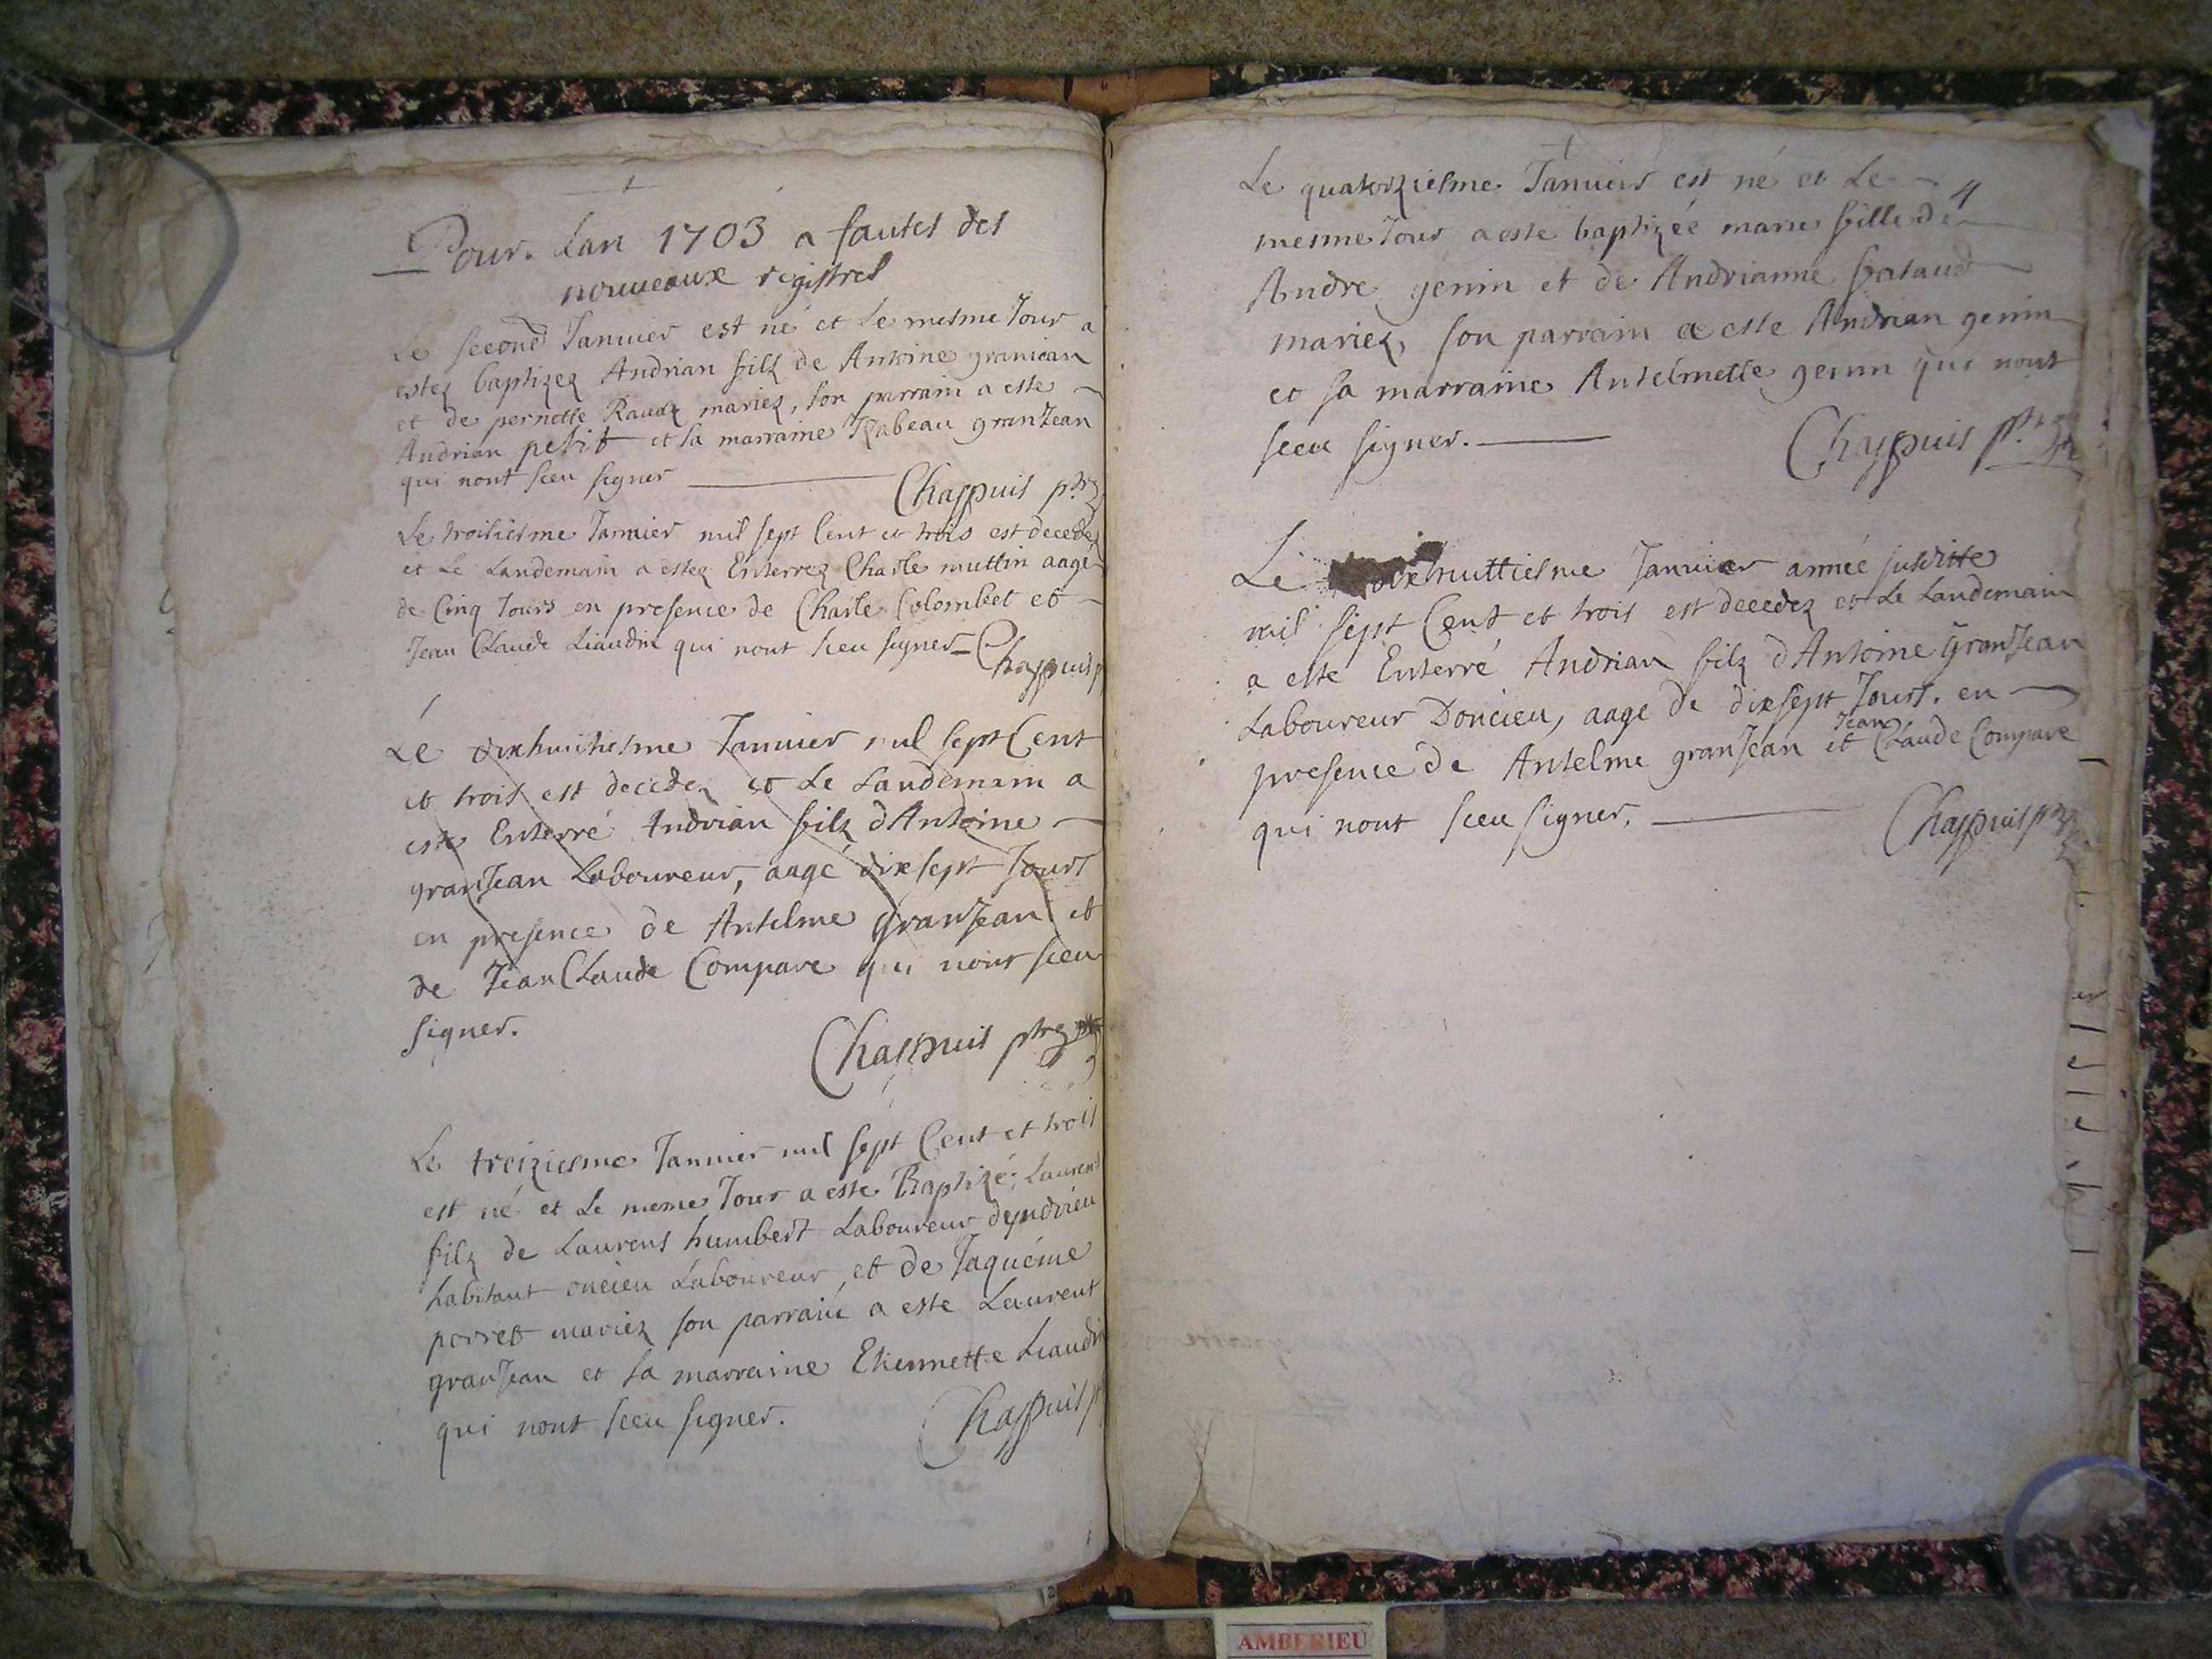 Pour. Lan 1703 a fautes des
nouveaux registres
Le second Januier est né et Le mesme Jour a
estez baptizez Andrian filz de Antoine granjean
et de pernette Raude mariez, son parrain a este
Andrian petit et sa marraine Izabeau granJean
qui nont sceu signer
Chappuis ptre
Le troisiesme Januier mil sept Cent et trois est decedez
et Le Landemain a estez Enterrez Charle muttin aagé
de Cinq Jours en presence de Charle Colombet et
Jean Claude Liaudin qui nont sceu signer Chappuis p
Le dixhuitiesme Januier mil sept Cent
et trois est decedez et Le Landemain a
este Enterré Andrian filz dAntoine
granJean Laboureur, aagé dixsept Jours
en presence de Antelme GranJean et
de Jean Claude Compare qui nont sceu
signer.
Chappuis ptre
Le treiziesme Januier mil sept Cent et trois
est né et Le meme Jour a este Baptizé, Laurend
filz de Laurens humbert Laboureur dyndrieu
habitant oncieu Laboureur, et de Jaquéme
perret mariez son parrain a este Laurent
granJean et sa marraine Etiennette Liaudi
qui nont sceu signer.
Chappuis p
4
Le quatorziesme Januier est né et Le
mesme Jour a este baptizée marie fille de
Andre genin et de Andrianne
mariez, son parrain a este Andrian genin
et sa marraine Antelmette genin qui nont
sceu signer.
Chappuis ptre
Le dixhuittiesme Januier année susditte
mil sept Cent et trois est decedez et Le Landemain
a esté Enterré Andrian filz dAntoine GranJean
Laboureur Doncieu, aage de dixsept Jours. en
presence de Antelme granJean et Jean Claude Compare
qui nont sceu signer.
Chappuis ptre
AMBERIEU